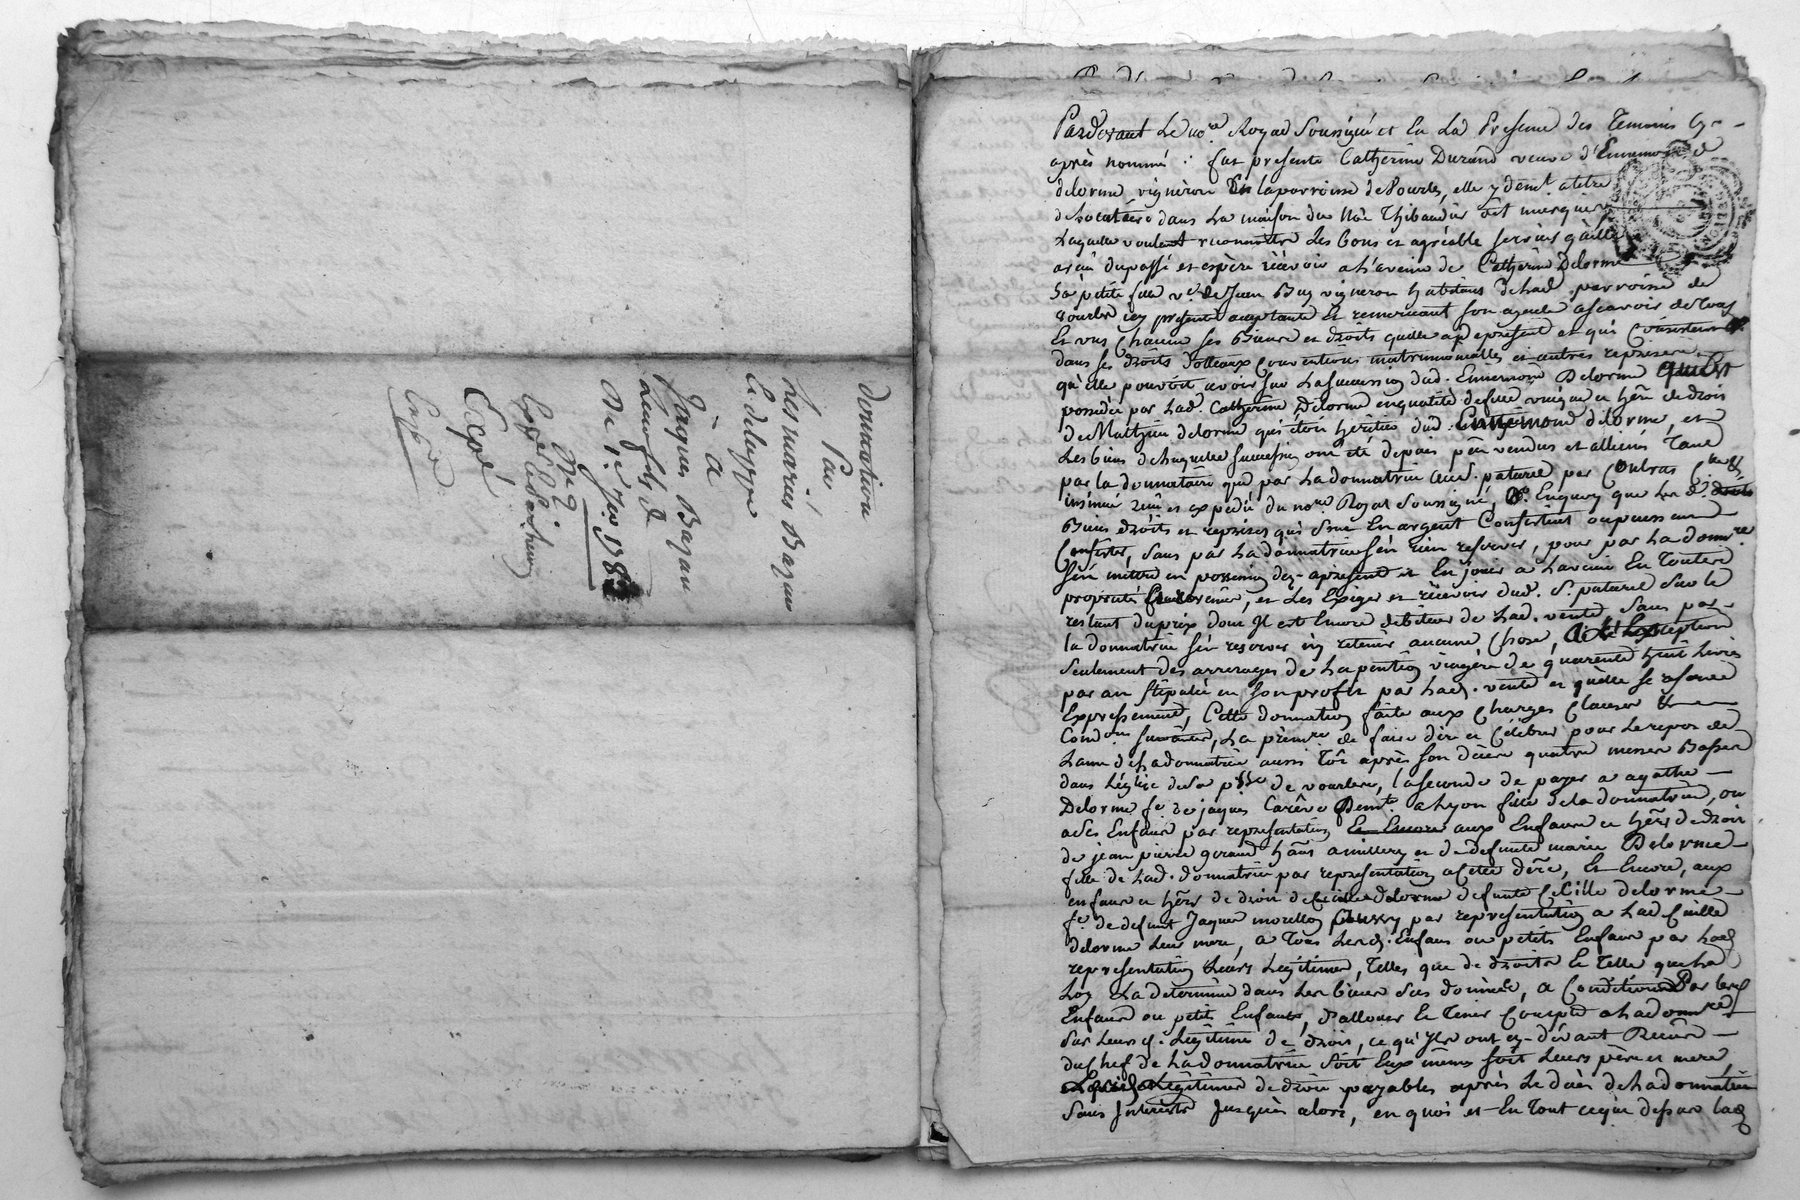 donnation
Par
Les mariés Bazan
à
Jâques Bazan
Leur fils
De 1.er 7bre 178
Expé
Pardevant Le no.re Royal Soussigné et En La Presence des Temoins Cy-
après nommé : fut presente Catherine Durand veuve d'Ennemond
delorme vigneron En la parroisse de Vourles, elle y demt. a titre
de locataire dans La maison du Thibaudier
Laquelle voulant reconnoitre Les bons et agréable services qu'elle
a reçû du passé et espère recevoir a L'avenir de Catherine Delorme
Sa petite fille ve. de Jean Buy vigneron habitans de Lad. parroisse de
Vourles icy presente acceptante Et remerciant son ayeule ascavoir de tous
Et uns Chacuns ses Biens et droits quelle a de present et qui Consistent
dans ses droits dottaux Conventions matrimonialles et autres reprises
qu'elle pouvoit avoir sur La succession dud. Ennemond Delorme
possedée par Lad. Catherine Delorme en qualité de fille unique et hére. de droit
de Mathieu delorme qui étoit heritier dud. Ennemond delorme, et
Les biens de Laquelle succession ont été depuis peu vendus et alliénés Tant
par la donnataire que par La donnatrice au S. paturel par Contrat
insinué reçû et expedié du no.re Royal Soussigné, En quoy que Les d.
Biens droits et reprises qui sont En argent Consistent ou puissent
Consister, sans par La donnatrice s'en rien reserver, pour par La donn.re
s'en mettre en possession dez-apresent et En jouir a L'avenir En Toute
proprieté, et Les Exiger et recevoir dud. S. paturel sur le
restant du prix dont Il est Encore debiteur de Lad. vente sans par
la donnatrice s'en reserver ny retenir aucune Chose, Exception
seulement des arrerages de La pention viagère de quarente huit Livres
par an stipulée en son profit par Lad. vente et quelle se reserve
Expressement, Cette donnation faite aux Charges Clauses Et
Condons suivantes, La premre de faire dire et Célébrer pour Le repos de
L'ame de La donnatrice aussi Tôt après son décès quatre messes Basses
dans L'église de Sa psse de vourles, la seconde de payer a agathe
Delorme fe. de jaques Demt. a Lyon fille de la donnatrice, ou
a ses Enfans par representation Et Encore aux Enfans et hérs de droit
de jean pierre hant a millery et de defunte marie Delorme
fille de Lad. donnatrice par representation a Cette dere, Et Encore, aux
enfans et hérs de droit de Cecille delorme defunte Cecille delorme
fe. de defunt Jaques morellon par representation a Lad Cecille
delorme Leur mere, a Tous Lesd. Enfans ou petits Enfans par Lad
representation Leurs Legitimes, Telles que de droits Et Telle que La
Loy La determine dans Les biens sus donnés, a Condition Par Lesd
Enfans ou petits Enfans, d'allouer Et Tenir Compte a La donnre
Sur Leursd. Légitime de droit, ce qu'Ils ont cy-devant Recûs
du Chef de La donnatrice soit Eux mêmes soit Leurs père et mere,
Légitimes de droit payables après Le décès de La donnatrice
sans Interêts Jusques alors, en quoi et En Tout ce que dessus lad